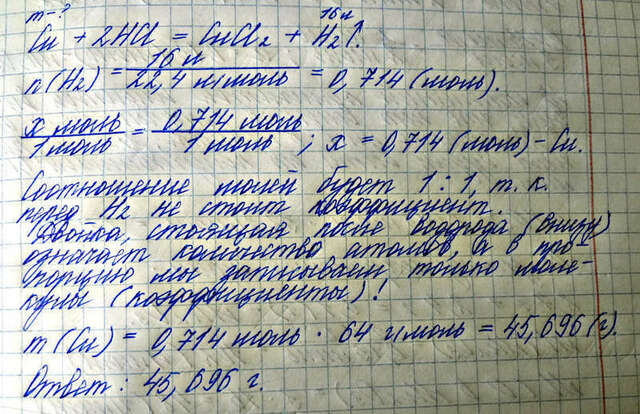 m-?
16 л
Cu + 2HCl = CuCl₂ + H₂↑.
n(H₂) = 16 л / 22,4 л/моль = 0,714 (моль).
х моль / 1 моль = 0,714 моль / 1 моль ; х = 0,714 (моль) - Cu.
Соотношение молей будет 1:1, т.к.
перед H₂ не стоит коэффициент.
Двойка, стоящая после водорода (внизу)
означает количество атомов, а в про-
порцию мы записываем только моле-
кулы (коэффициенты)!
m(Cu) = 0,714 моль · 64 г/моль = 45,696 (г).
Ответ: 45,696 г.